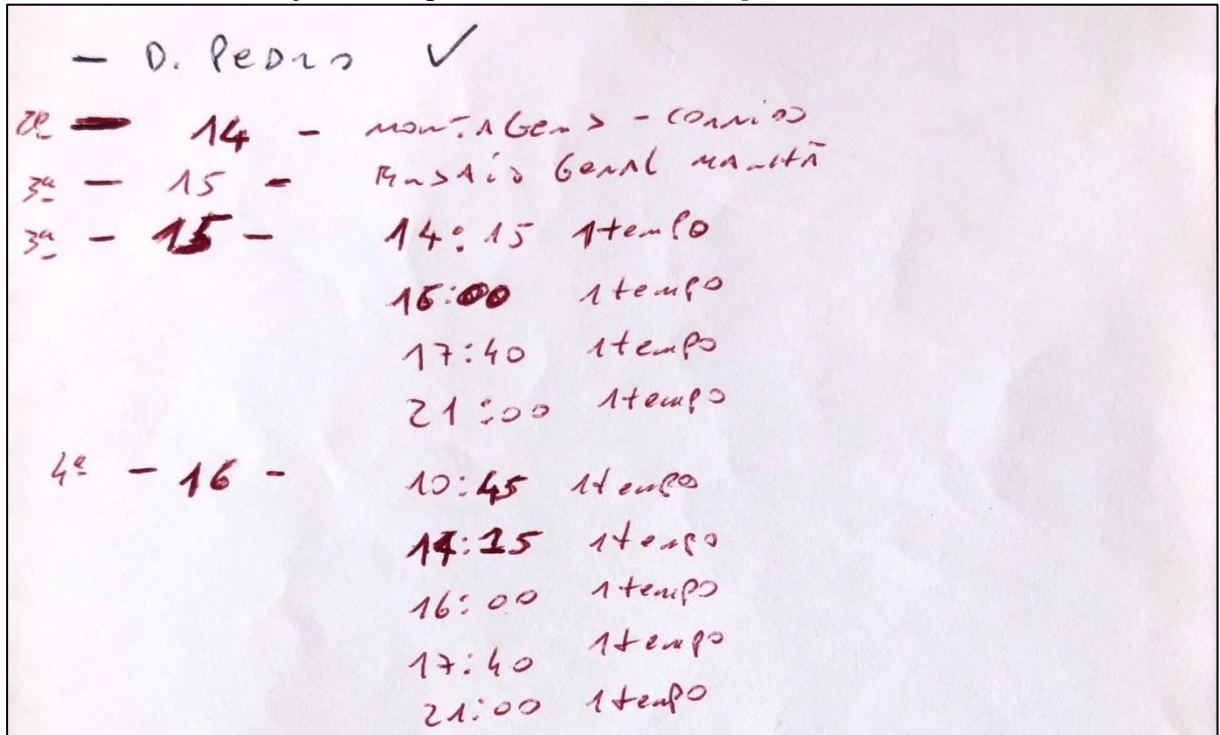 - D. Pedro ✓
2ª - 14 - montagens - corrido
3ª - 15 - Ensaio Geral manhã
3ª - 15 - 14:15 1 tempo
16:00 1 tempo
17:40 1 tempo
21:00 1 tempo
4ª - 16 - 10:45 1 tempo
14:15 1 tempo
16:00 1 tempo
17:40 1 tempo
21:00 1 tempo